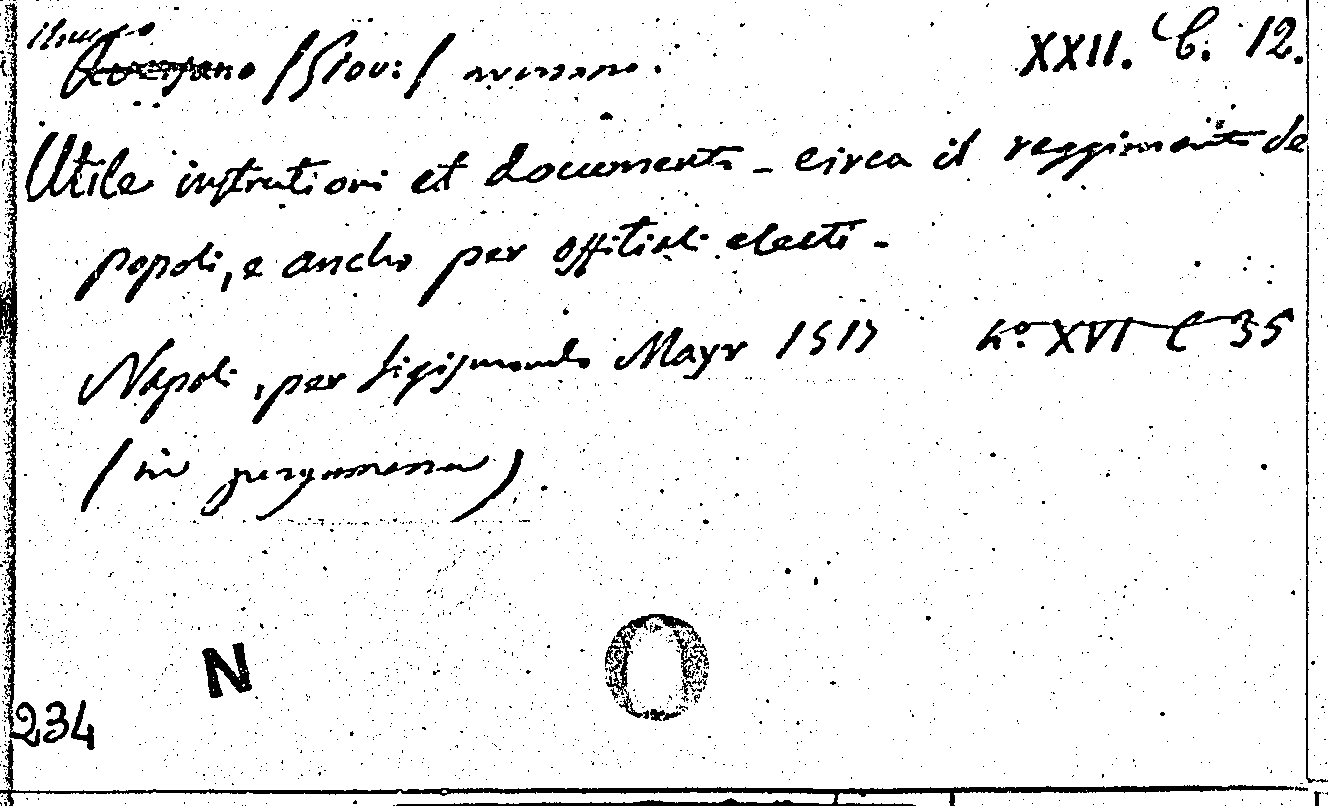 Aversano (Giov:) aversano. XXII. C. 12.
Utile instrutioni et documenti - circa il reggimento de
popoli, e ancho per offitiali electi -
Napoli, per Sigismondo Mayr 1517 4.º XVI C 35
(in pergamena)
N
O
234